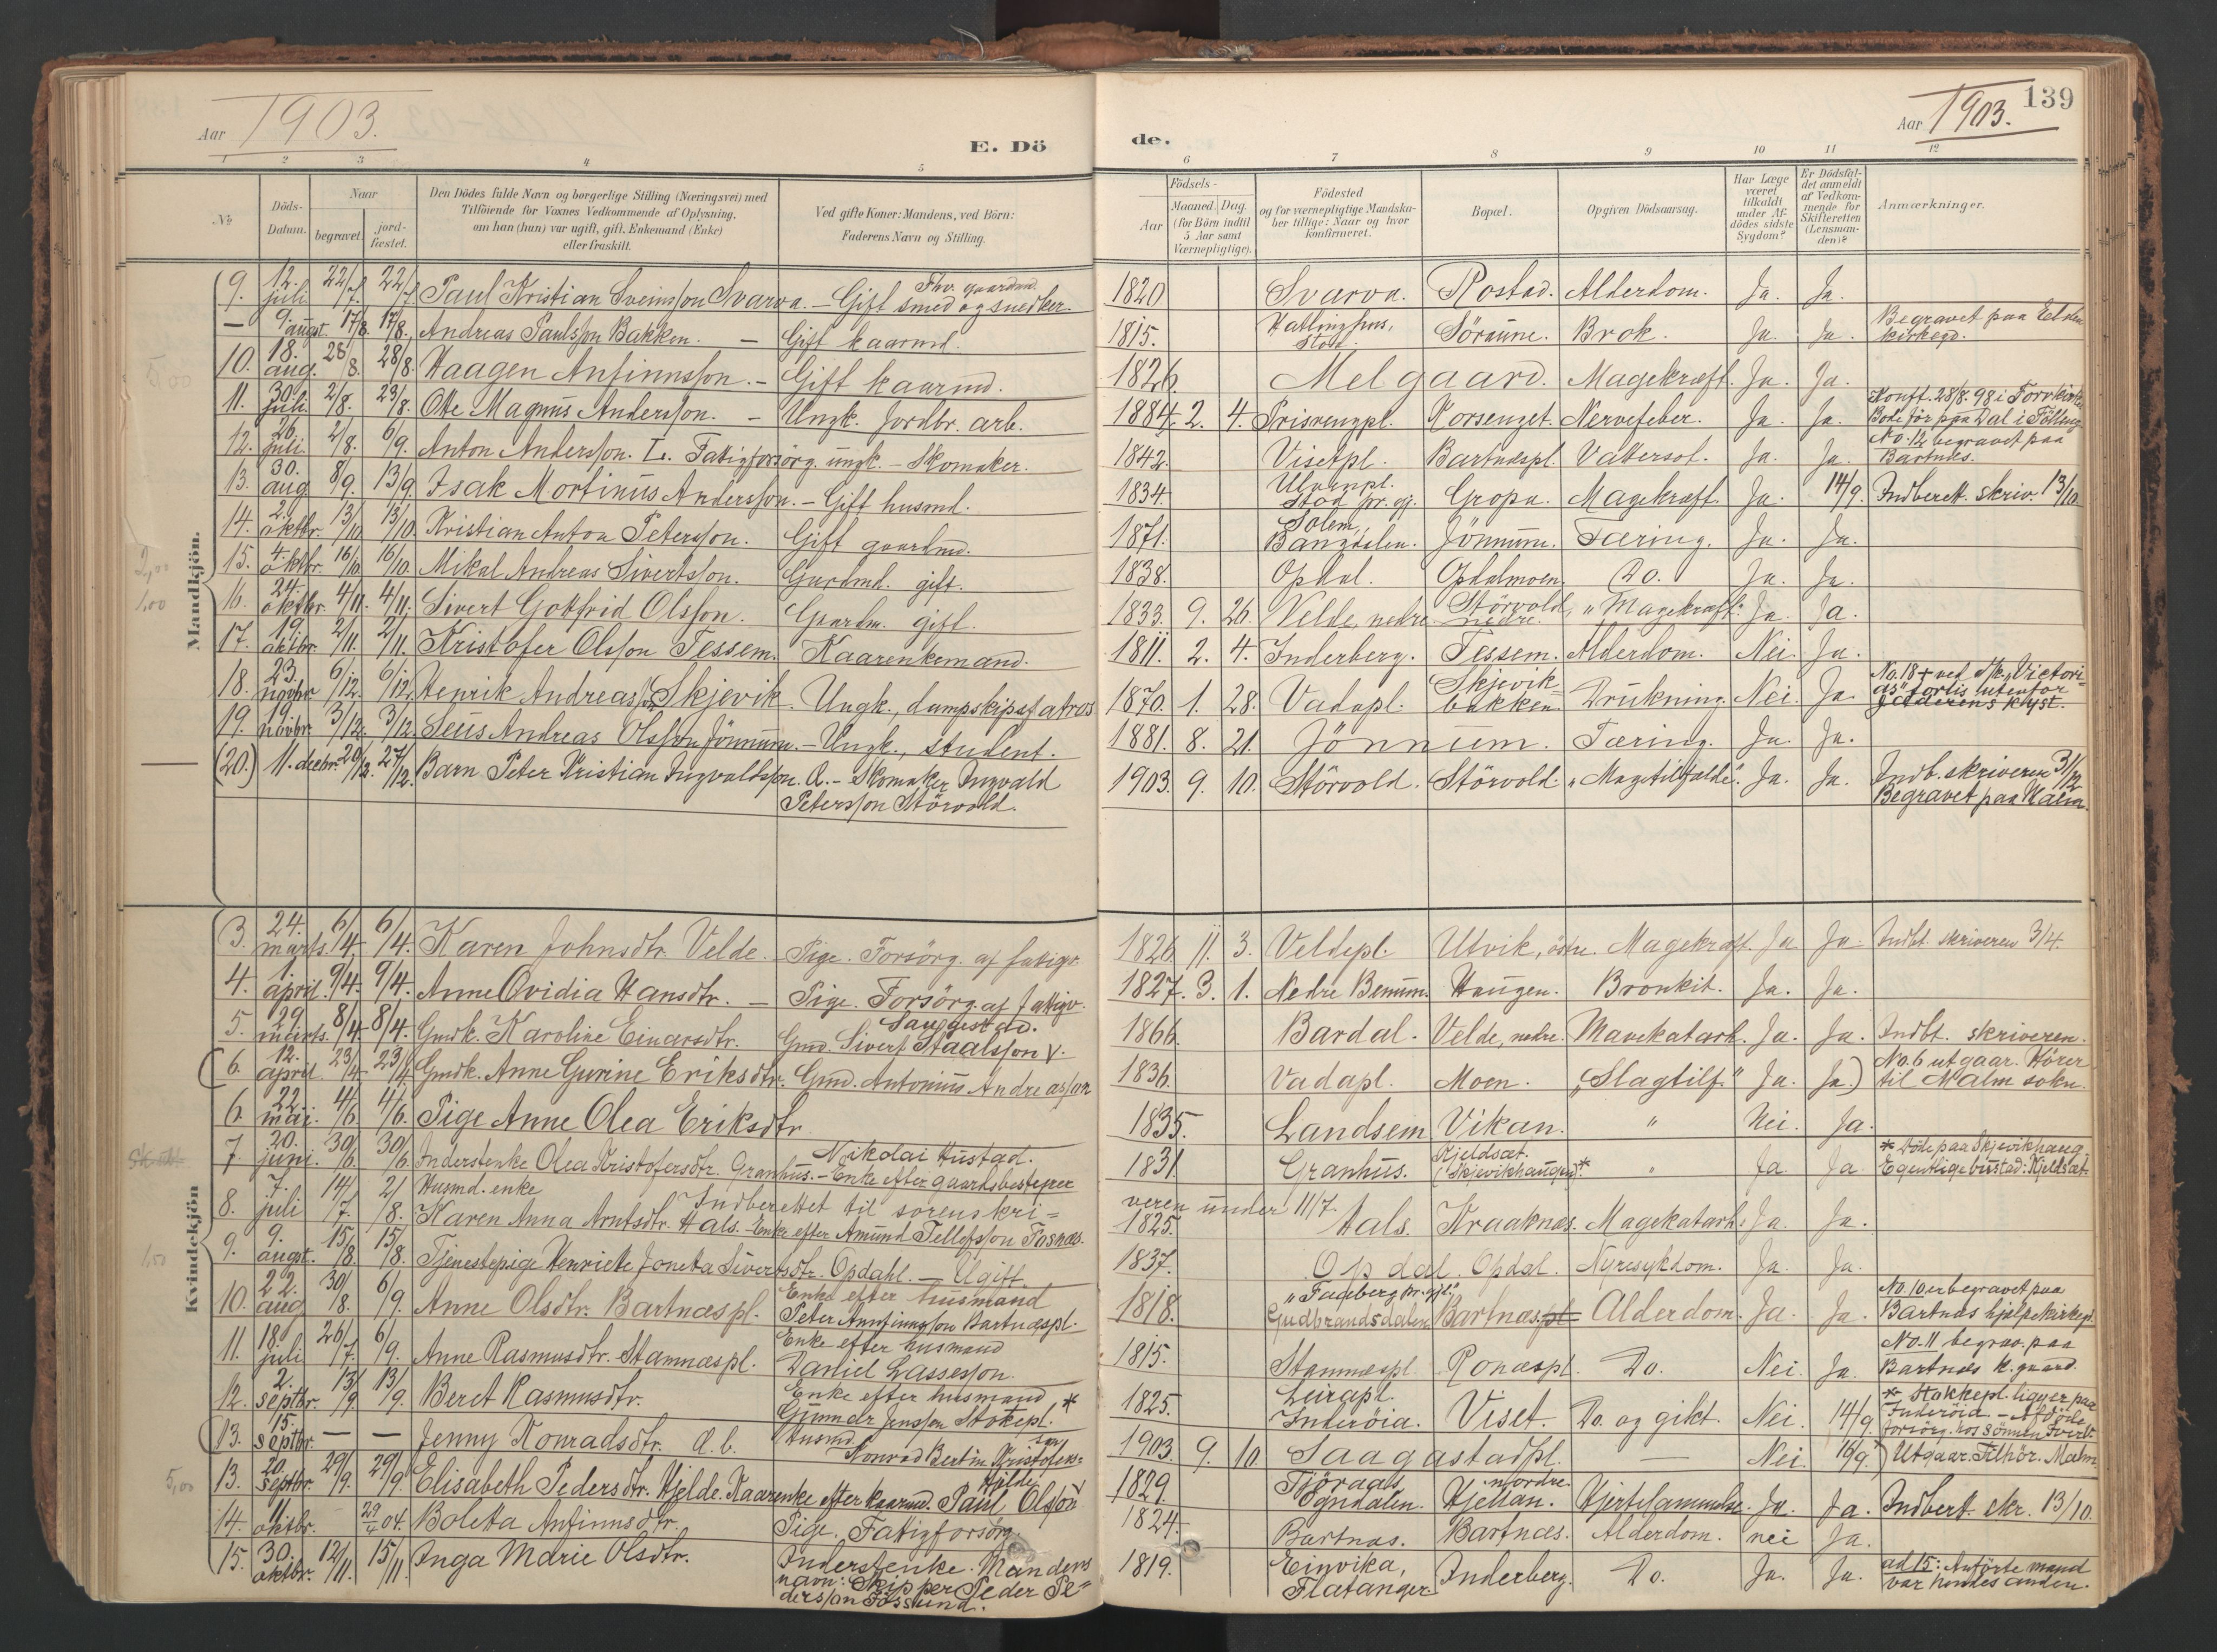 Aar 1903.
E. Dö
de.
Aar 1903.
139
1 2 3 4 5 6 7 8 9 10 11 12
No
Döds-Datum.
Naar
begravet.
jord-fæstet.
Den Dödes fulde Navn og borgerlige Stilling (Næringsvei) med
Tilföiende for Voxnes Vedkommende af Oplysning,
om han (hun) var ugift, gift, Enkemand (Enke)
eller fraskilt.
Ved gifte Koner: Mandens, ved Börn:
Faderens Navn og Stilling.
Födsels-
Aar
Maaned. Dag.
(for Börn indtil
5 Aar samt
Værnepligtige).
Födested
og for værnepligtige Mandska-
ber tillige: Naar og hvor
konfirmeret.
Bopæl.
Opgiven Dödsaarsag.
Har Læge
været
tilkaldt
under Af-
dödes sidste
Sygdom?
Er Dödsfal-
det anmeldt
af Vedkom-
mende for
Skifteretten
(Lensman-
den)?
Anmærkninger.
Mandkjön.
9. 12. juli 22/7. 22/7. Paul Kristian Sveinsson Svarva. – Gift smed og snedker. 1820 Svarva. Rostad. Alderdom. Ja. Ja.
— 9. augst. 17/8. 17/8. Andreas Paulsson Bakken. – Gift kaarmd. 1815. Stod. Söraune. Brok. Ja. Ja. Begravet paa Elden kirkegd.
5,00
10. 18. aug. 28/8. 28/8. Haagen Anfinnsson. – Gift kaarmd. 1826 Melgaard. Magekræft. Ja. Ja.
11. 30. juli 2/8. 23/8. Ole Magnus Andersson. – Ungk. Jordbr. arb. 1884. 2. 4. Korsenget. Nervefeber. Ja. Ja. Konft. 28/8. 98 i
12. 26. juli. 2/8. 6/9. Anton Andersson. L. Fatigforsörg. ungk. – Skomaker. 1842. Visetpl. Bartnæspl. Vattersot. Ja. Ja. No. 12 begravet paa Bartnes.
13. 30. aug. 8/9. 13/9. Isak Mortinus Andersson. – Gift husmd. 1834. Stod pr. gj. Gropa. Magekræft. Ja. 14/9. Indberett. skriv. 13/10
14. 2. oktbr. 13/10 13/10. Kristian Anton Petersson. Gift gaardmd. 1871. Solem, Bangdalen. Jönnum. Tæring. Ja. Ja.
2,00
15. 4. oktbr. 16/10 16/10. Mikal Andreas Sivertsson. Gardmd. gift. 1838. Opdal. Opdalmoen. Do. Ja. Ja.
1,00
16. 24. oktbr. 4/11. 4/11. Sivert Gotfrid Olsson. Gaardm. gift. 1833. 9. 26. Velde, nedre. Störvold, nedre. "Magekræft". Ja. Ja.
17. 19. oktbr. 2/11. 2/11. Kristofer Olsson Tessem. Kaarenkemand. 1811. 2. 4. Inderberg. Tessem. Alderdom. Nei. Ja.
18. 23. novbr 6/12. 6/12. Henrik Andreasson Skjevik. Ungk., dampskipsmatros 1870. 1. 28. Vadapl. Skjevikbakken. Drukning. Nei. Ja. No. 18 † ved Sk. „Victorias" forlis utenfor Jæderens kyst.
19. 19. novbr. 3/12. 3/12. Seus Andreas Olsson Jönnum. – Ungk., student. 1881. 8. 21. Jönnum. Tæring. Ja. Ja.
(20.) 11. decbr. 20/12. 27/12. Barn Peter Kristian Ingvaldsson. Æ. – Skomaker Ingvald Petersson Störvold. 1903. 9. 10. Störvold. Störvold. „Magetilfælde". Ja. Ja. Indb. skriveren 31/12 Begravet paa Malm.
Kvindekjön
3. 24. marts. 6/4. 6/4. Karen Johnsdtr. Velde. – Pige. Forsörg. af fatigv. 1826. 11. 3. Veldepl. Utvik, östre. Magekræft. Ja. Ja. Indbt. skriveren 3/4.
4. 1. april. 9/4. 9/4. Anne Ovidia Hansdtr. – Pige. Forsörg. af fattigv. 1827. 3. 1. Nedre Benum. Haugen. Bronkit. Ja. Ja.
5. 29. marts. 8/4. 8/4. Gmdk. Karoline Einarsdtr. Gmd. Sivert Staalsson V. 1866. Bardal. Velde, nedre. Mavekatarh. Ja. Ja. Indbt. skriveren.
(6. 12. april. 23/4. 23/4. Gmdk. Anne Gurine Eriksdtr. Gmd. Antonius Andreasson 1836. Vadapl. Moen. „Slagtilf." Ja. Ja.) No. 6 utgaar. Hörer til Malm sokn.
6. 22. mai. 4/6. 4/6. Pige Anne Olea Eriksdtr. 1835. Landsem Vikan. " Nei. Ja.
7. 20. juni. 30/6. 30/6. Inderstenke Olea Kristofersdtr. Granhus. – Enke efter gaardsbestyrer Nikolai Hustad. 1831. Granhus. Kjeldsæt. (Skjevikhaugen)* " Ja. Ja. * Döde paa Skjevikhaug. Egentlige bustad: Kjeldsæt.
8. 7. juli 14/7. 2/8. Husmd. enke Karen Anna Arntsdtr. Hals. Enke efter Amund Tellefsson Fosnæs. Indberettet til sorenskriveren under 11/7. 1825. Hals. Kraaknæs. Magekatarh. Ja. Ja.
1,50
9. 9. augst. 15/8. 15/8. Tjenestepige Henriette Joneta Sivertsdtr. Opdahl. – Ugift. 1837. Opdal. Opdal. Nyresykdom. Ja. Ja.
10. 22. aug 30/8. 6/9. Anne Olsdtr. Bartnæspl. Enke efter husmand Peter Annfinnsson Bartnæspl. 1818. "Fagberg pr. gjl." Gudbrandsdalen. Bartnæspl. Alderdom. Ja. Ja. No. 10 er begravet paa Bartnæs hjelpekirkegd.
11. 18. juli 26/7. 6/9. Anne Rasmusdtr. Stamnæspl. Enke efter husmand Daniel Lassesson. 1815. Stamnæspl. Ronæspl. Do. Nei. Ja. No. 11 begrav. paa Bartnæs k. gaard.
12. 2. septbr. 13/9. 13/9. Beret Rasmusdtr. Enke efter husmand * Gunnar Jensson Stokepl. 1825. Leirapl. Inderöia. Viset. Do. og gikt. Nei. 14/9. * Stokkepl. ligger paa Inderöia.
(13. 15. septbr. — — Jenny Konradsdtr. d. b. Husmd. Konrad Bertin Kristofers= 1903 9. 10. Saagastadpl. — Nei. 16/9.) Utgaar. Tilhör. Malm
5,00
13. 20. septbr. 29/9. 29/9. Elisabeth Pedersdtr. Hjelde. Kaarenke efter kaarmd. Paul Olsson Hjelde. 1829. Ogndalen. Hjellan. nordre. Hjertelammelse. Ja. Ja. Indbert. skr. 13/10.
14. 11. oktbr. 29/4 04. Boletta Anfinnsdtr. Pige. Fattigforsörg. 1824. Bartnæs. Bartnæs. Alderdom. nei Ja.
15. 30. oktbr. 12/11. 15/11. Inga Marie Olsdtr. Inderstenke. Mandens navn: Skipper Peder Pedersson Fossund. 1819. Einvika, Flatanger. Inderberg. Do. Ja. Ja. ad 15: Anförte mand var hendes anden.